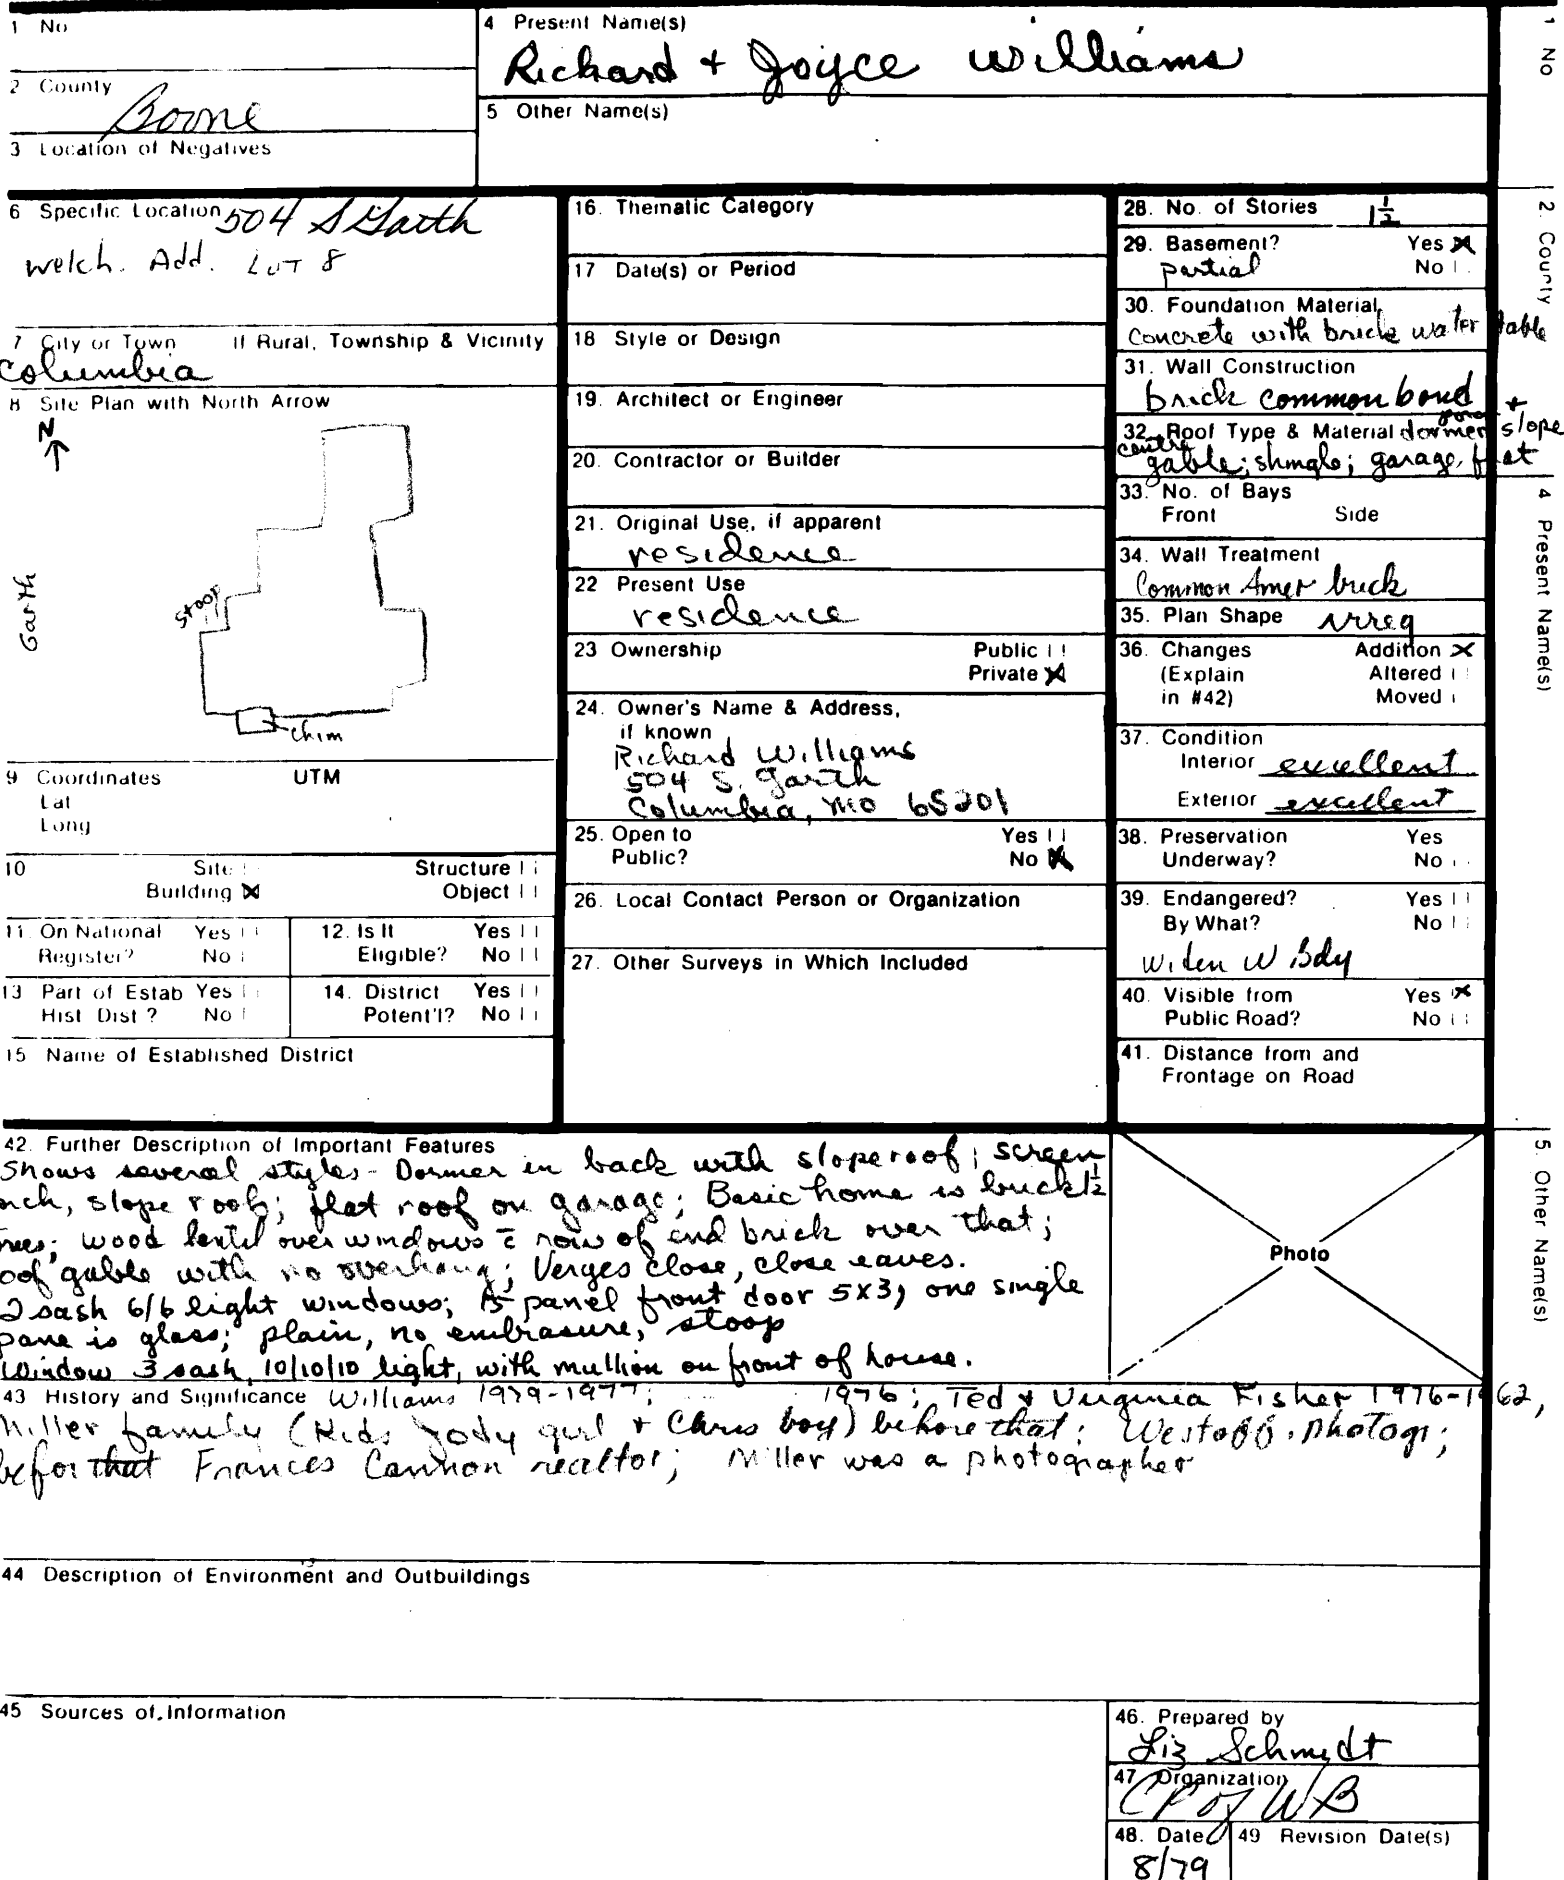 1 No
4 Present Name(s)
Richard + Joyce Williams
2 County
Boone
5 Other Name(s)
3 Location of Negatives
6 Specific Location 504 S Garth
Welch. Add. LOT 8
7 City or Town If Rural, Township & Vicinity
Columbia
8 Site Plan with North Arrow
N
Garth
Stoop
chim
9 Coordinates UTM
Lat
Long
10 Site Structure
Building X Object
11. On National Register? Yes No
12. Is It Eligible? Yes No
13 Part of Estab Hist Dist? Yes No
14. District Potent'l? Yes No
15 Name of Established District
16. Thematic Category
17 Date(s) or Period
18 Style or Design
19. Architect or Engineer
20. Contractor or Builder
21. Original Use, if apparent
residence
22 Present Use
residence
23 Ownership Public
Private X
24. Owner's Name & Address,
if known
Richard Williams
504 S. Garth
Columbia, MO 65201
25. Open to Yes
Public? No X
26. Local Contact Person or Organization
27. Other Surveys in Which Included
28. No. of Stories 1½
29. Basement? Yes X
partial No
30. Foundation Material
concrete with brick water table
31. Wall Construction
brick common bond
32. Roof Type & Material dormer + slope
gable; shingle; garage, flat
33. No. of Bays
Front Side
34. Wall Treatment
Common Amer brick
35. Plan Shape irreg
36. Changes Addition X
(Explain Altered
in #42) Moved
37. Condition
Interior excellent
Exterior excellent
38. Preservation Yes
Underway? No
39. Endangered? Yes
By What? No
Widen W Bdy
40. Visible from Yes X
Public Road? No
41. Distance from and
Frontage on Road
1 No
2. County
4 Present Name(s)
5. Other Name(s)
42. Further Description of Important Features
Shows several styles - Dormer in back with slope roof; screen
rch, slope roof; flat roof on garage; Basic home is brick 1½
ries; wood lentil over windows c̄ row of end brick over that;
oof gable with no overhang; Verges close, close eaves.
2 sash 6/6 light windows; 15 panel front door 5x3, one single
pane is glass; plain, no embrasure, stoop
Window 3 sash 10/10/10 light, with mullion on front of house.
Photo
43 History and Significance Williams 1979-1977; 1976; Ted & Virginia Fisher 1976-1962,
Miller family (Kids Jody girl + Chris boy) before that; Westoff, photogr;
befor that Frances Cannon realtor; Miller was a photographer
44 Description of Environment and Outbuildings
45 Sources of Information
46. Prepared by
Liz Schmidt
47 Organization
CP of WB
48. Date 49 Revision Date(s)
8/79